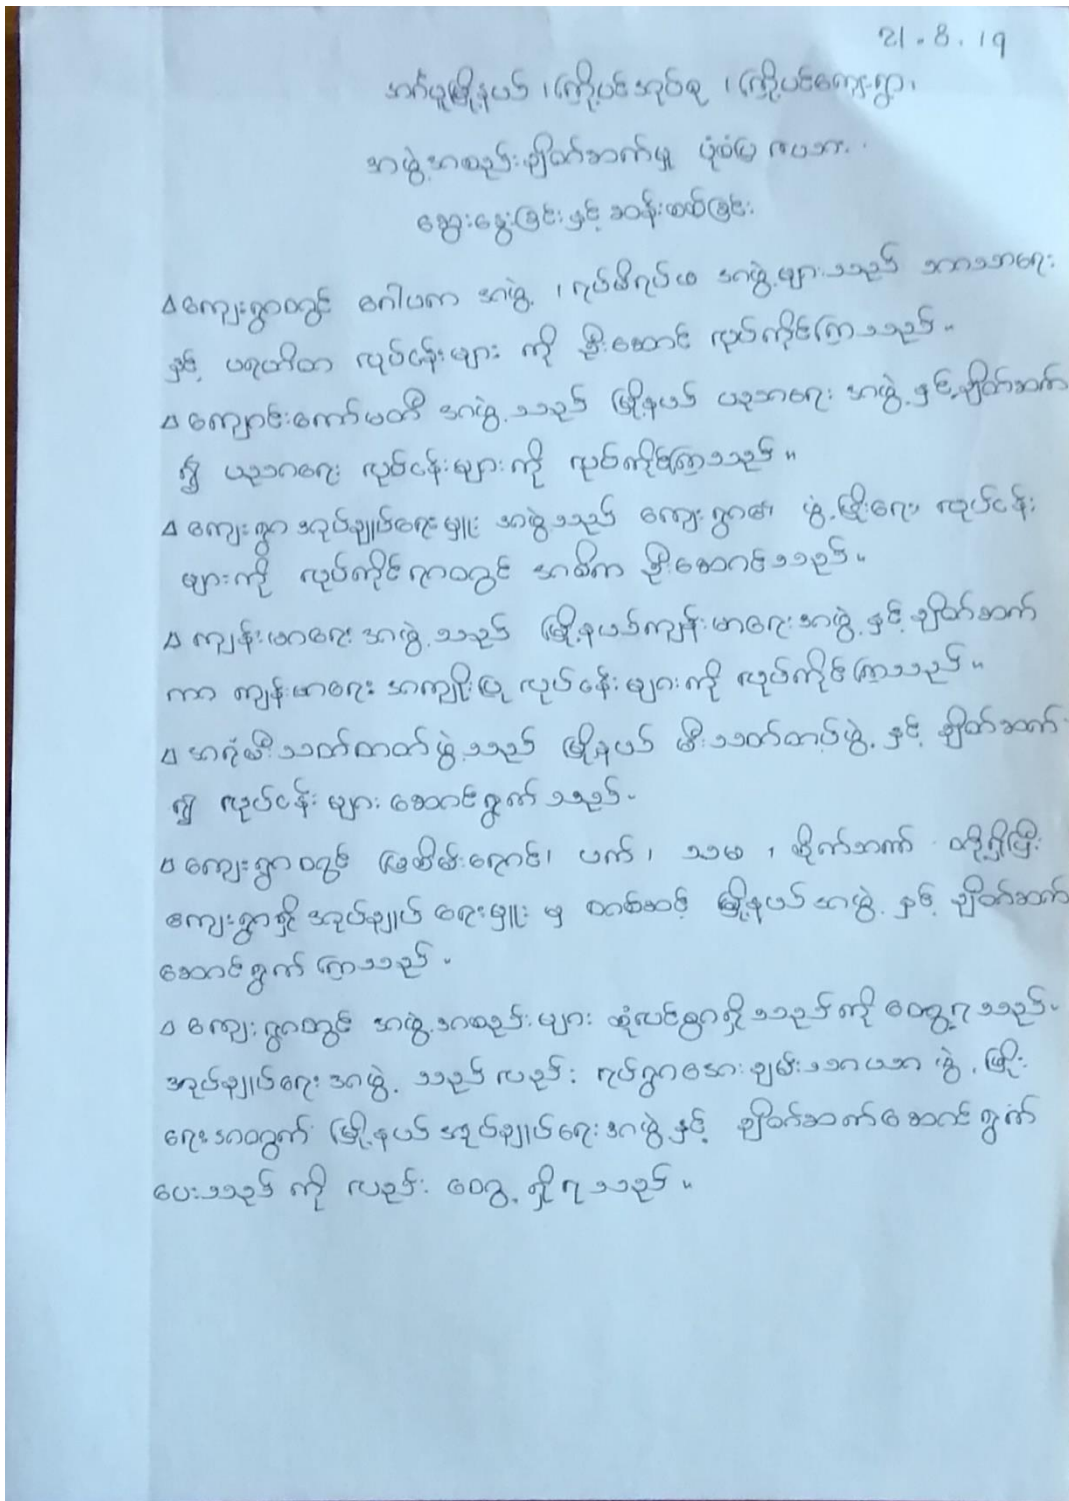 21.8.19
အင်္ဂပူမြို့နယ်၊ကြို့ပင်အုပ်စု၊ကြို့ပင်ကျေးရွာ၊
အဖွဲ့အစည်းချိတ်ဆက်မှု ပုံစံပြ
ဆွေးနွေးခြင်းနှင့်ဆန်းစစ်ခြင်း
∆ကျေးရွာတွင် ဂေါပက အဖွဲ့၊ရပ်မိရပ်ဖ အဖွဲ့များသည် ဘာသာရေး
နှင့် ပရဟိတ လုပ်ငန်းများ ကို ဦးဆောင် လုပ်ကိုင်ကြသည်။
∆ကျောင်းကော်မတီ အဖွဲ့သည် မြို့နယ် ပညာရေး အဖွဲ့နှင့်ချိတ်ဆက်
၍ ပညာရေး လုပ်ငန်းများကို လုပ်ကိုင်ကြသည်။
∆ကျေးရွာအုပ်ချုပ်ရေးမှူး အဖွဲ့သည် ကျေးရွာ၏ ဖွံ့ဖြိုးရေး လုပ်ငန်း
များကို လုပ်ကိုင်ရာတွင် အဓိက ဦးဆောင်သည်။
∆ကျန်းမာရေးအဖွဲ့သည် မြို့နယ်ကျန်းမာရေးအဖွဲ့နှင့်ချိတ်ဆက်
ကာ ကျန်းမာရေး အကျိုးပြု လုပ်ငန်းများကို လုပ်ကိုင်ကြသည်။
∆အရံမီးသတ်တပ်ဖွဲ့သည် မြို့နယ် မီးသတ်တပ်ဖွဲ့နှင့် ချိတ်ဆက်
၍ လုပ်ငန်းများ ဆောင်ရွက်သည်။
∆ကျေးရွာတွင် မြစိမ်းရောင်၊ ပက်၊ သမ၊ စိုက်ဘဏ် တို့ရှိပြီး
ကျေးရွာရှိ အုပ်ချုပ်ရေးမှူး မှ တစ်ဆင့် မြို့နယ်အဖွဲ့နှင့်ချိတ်ဆက်
ဆောင်ရွက်ကြသည်။
∆ကျေးရွာတွင် အဖွဲ့အစည်းများ စုံလင်စွာရှိသည်ကိုတွေ့ရသည်။
အုပ်ချုပ်ရေးအဖွဲ့သည်လည်း ရပ်ရွာအေးချမ်းသာယာဖွံ့ဖြိုး
ရေးအတွက် မြို့နယ်အုပ်ချုပ်ရေးအဖွဲ့နှင့် ချိတ်ဆက်ဆောင်ရွက်
ပေးသည်ကို လည်း တွေ့ရှိရသည်။